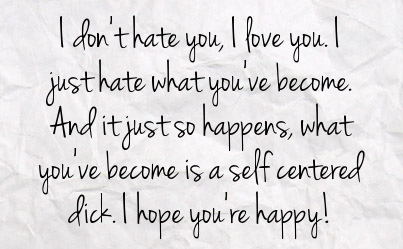 I don't hate you, I love you. I
just hate what you've become.
And it just so happens, what
you've become is a self centered
dick. I hope you're happy!